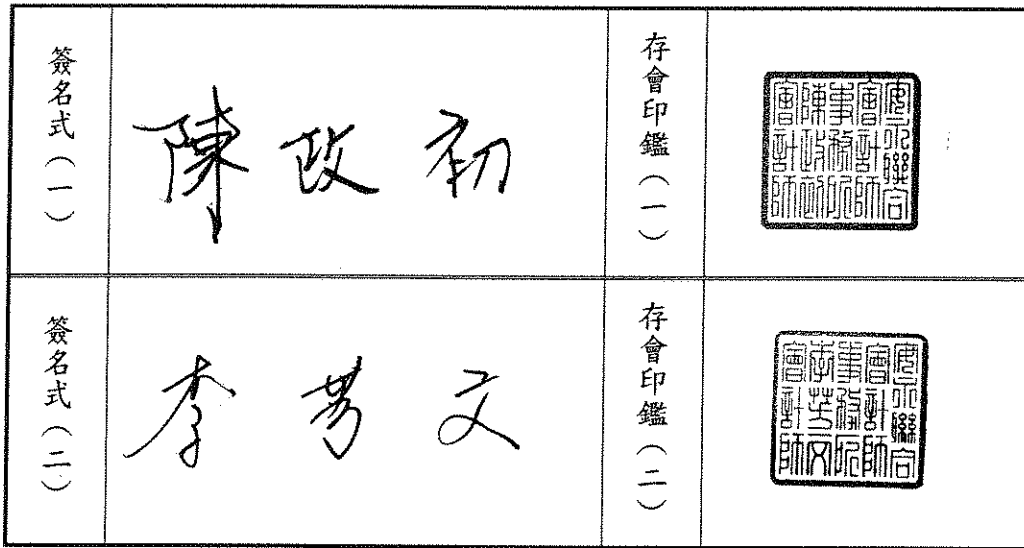 簽名式(一)
陳政初
存會印鑑(一)
安永聯合
會計師
事務所
陳政初
會計師
簽名式(二)
李芳文
存會印鑑(二)
安永聯合
會計師
事務所
李芳文
會計師